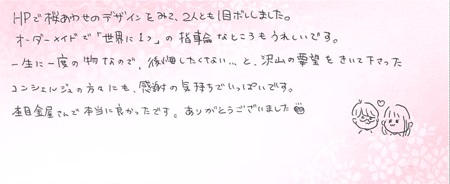 HPで桜あわせのデザインをみて、2人とも1目ボレしました。
オーダーメイドで「世界に1つ」の指輪なところもうれしいです。
一生に一度の物なので、後悔したくない…と、沢山の要望をきいて下さった
コンシェルジュの方々にも、感謝の気持ちでいっぱいです。
杢目金屋さんで本当に良かったです。ありがとうございました